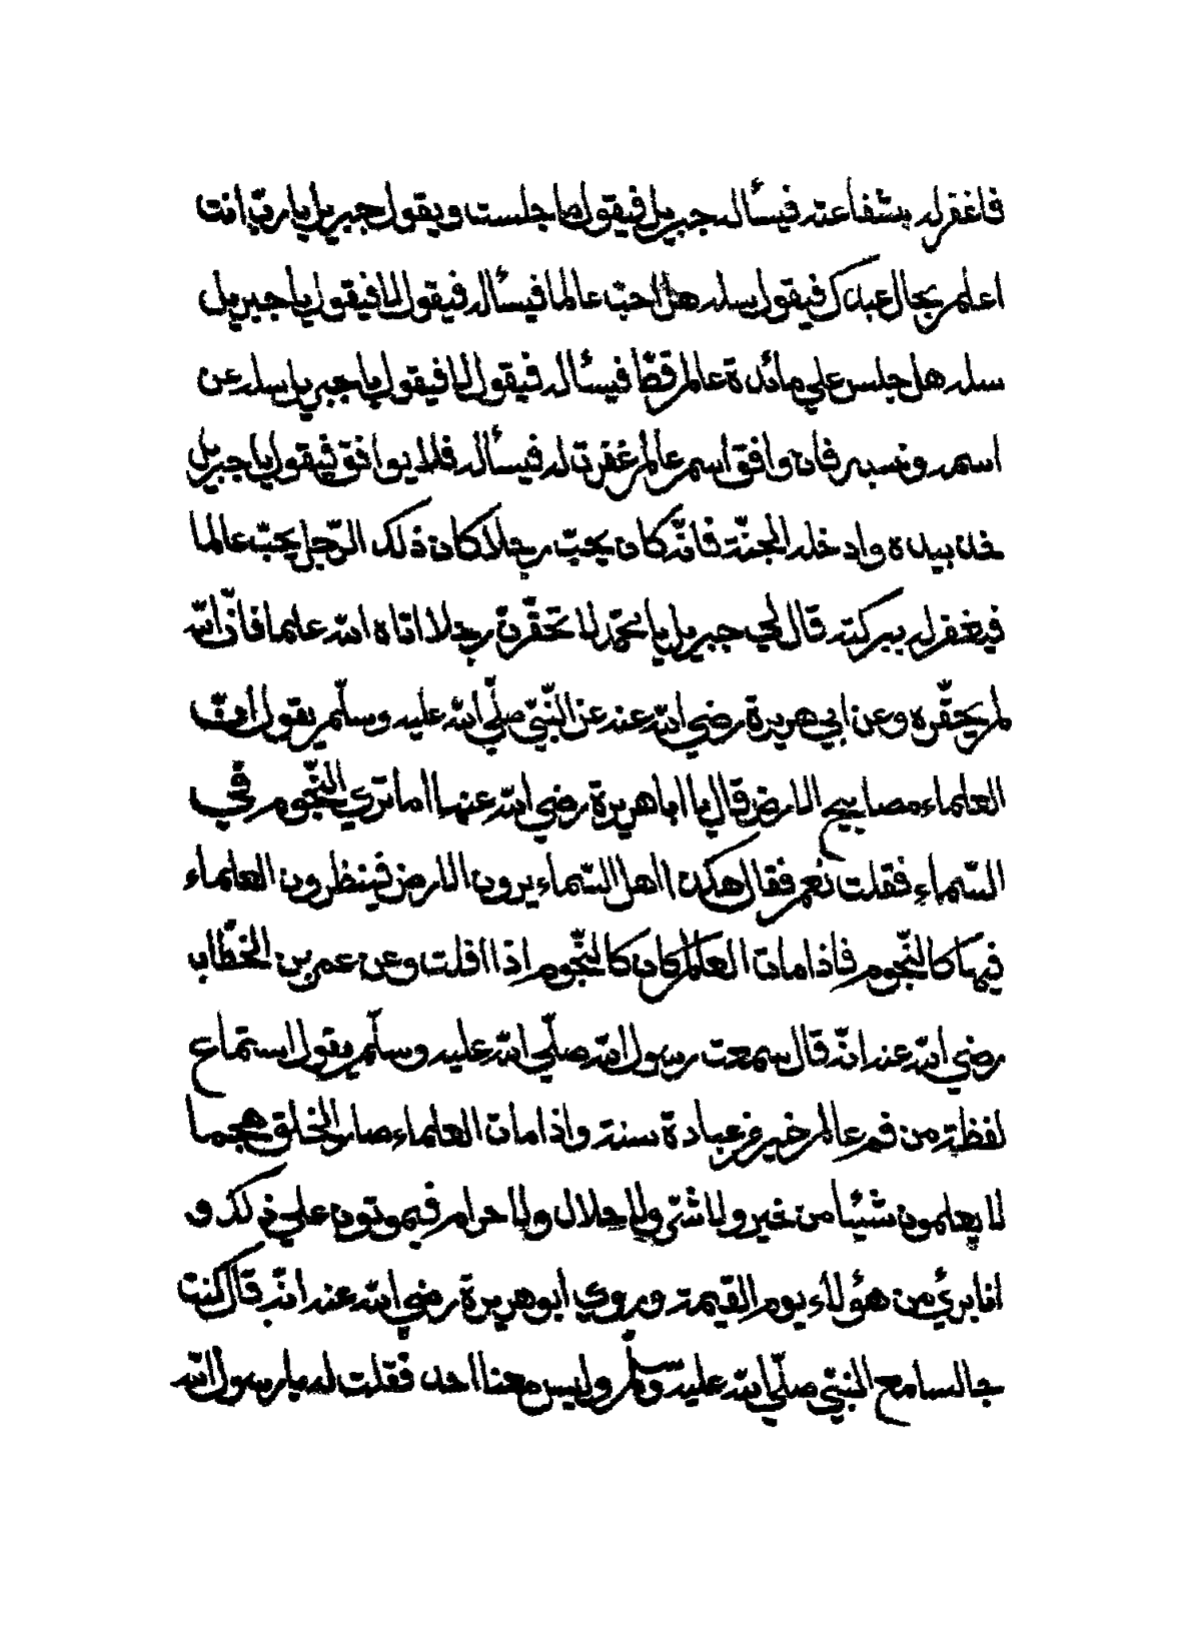 فاغفر له بشفاعته فيسأله جبريل فيقول ما جلست ويقول جبريل يا رب انت
اعلم بحال عبدك فيقول سله هل احبّ عالما فيسأله فيقول لا فيقول يا جبريل
سله هل جلس علي مائدة عالم قطّ فيسأله فيقول لا فيقول يا جبريل سله عن
اسمه ونسبه فان وافق اسم عالم غفرت له فيسأله فلا يوافق فيقول يا جبريل
خذ بيده وادخله الجنّة فانّه كان يحبّ رجلا كان ذلك الرّجل يحبّ عالما
فيغفر له ببركته قال لي جبريل يا محمّد لا تحقّرنّ رجلا اتاه الله علما فانّ الله
لم يحقّره وعن ابي هريرة رضي الله عنه عن النّبيّ صلّي الله عليه وسلّم يقول انّ
العلماء مصابيح الارض قال يا ابا هريرة رضي الله عنه اما تري النّجوم في
السّماء فقلت نعم فقال هكذا اهل السّماء يرون الارض فينظرون العلماء
فيها كالنّجوم فاذا مات العالم كان كالنّجوم اذا افلت وعن عمر بن الخطّاب
رضي الله عنه انّه قال سمعت رسول الله صلّي الله عليه وسلّم يقول استماع
لفظة من فم عالم خير من عبادة سنة واذا مات العلماء صار الخلق همجما
لا يعلمون شيئا من خير ولا شرّ ولا حلال ولا حرام فيموتون علي ذلك و
انا برئ من هؤلاء يوم القيمة وروي ابو هريرة رضي الله عنه انّه قال كنت
جالسا مع النبيّ صلّي الله عليه وسلّم وليس معنا احد فقلت له يا رسول الله